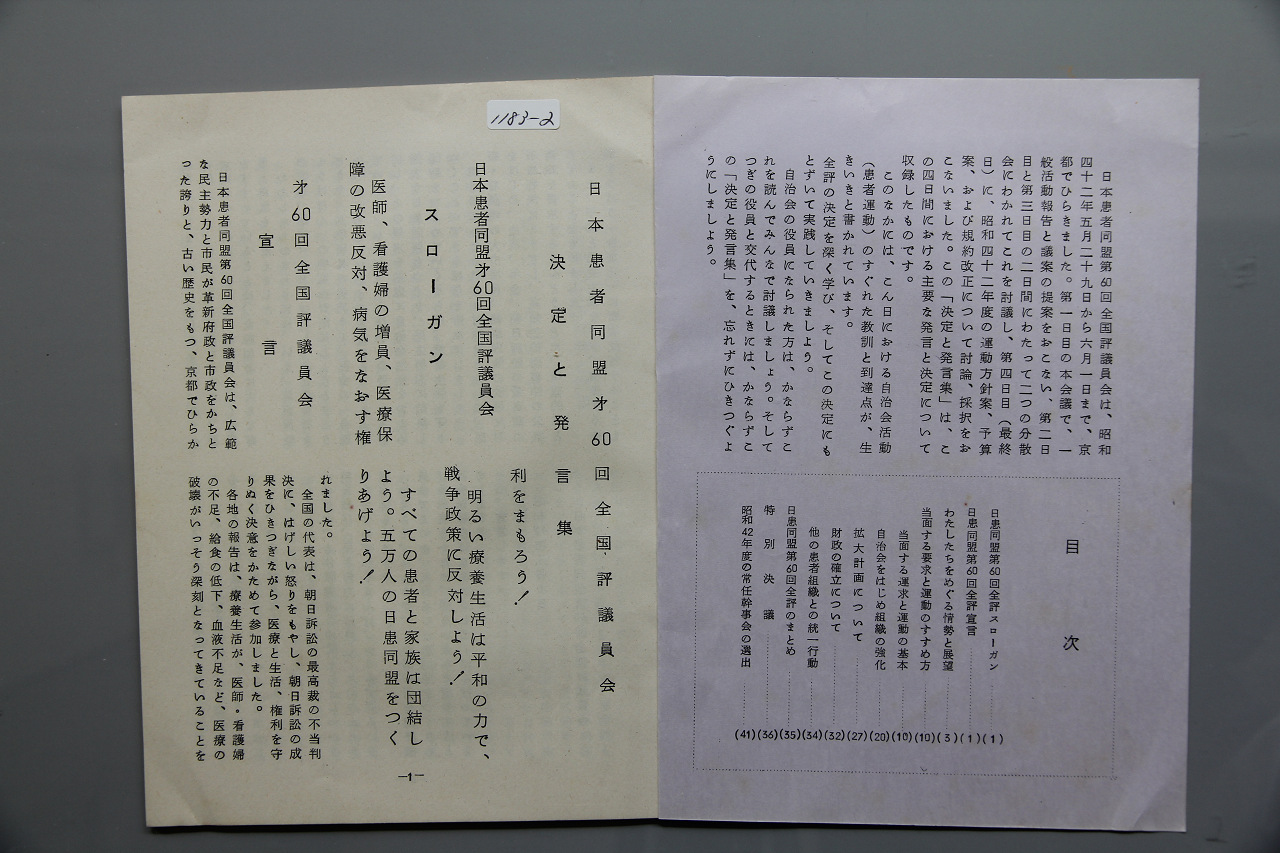 日本患者同盟第60回全国評議員会は、昭和
四十二年五月二十九日から六月一日まで、京
都でひらきました。第一日目の本会議で、一
般活動報告と議案の提案をおこない、第二日
目と第三日目の二日間にわたって二つの分散
会にわかれてこれを討議し、第四日目（最終
日）に、昭和四十二年度の運動方針案、予算
案、および規約改正について討論、採択をお
こないました。この「決定と発言集」は、こ
の四日間における主要な発言と決定について
収録したものです。
このなかには、こん日における自治会活動
（患者運動）のすぐれた教訓と到達点が、生
きいきと書かれています。
全評の決定を深く学び、そしてこの決定にも
とずいて実践していきましょう。
自治会の役員になられた方は、かならずこ
れを読んでみんなで討議しましょう。そして
つぎの役員と交代するときには、かならずこ
の「決定と発言集」を、忘れずにひきつぐよ
うにしましよう。
目次
日患同盟第60回全評スローガン……(1)
日患同盟第60回全評宣言……(1)
わたしたちをめぐる情勢と展望……(3)
当面する要求と運動のすすめ方……(10)
当面する運求と運動の基本……(10)
自治会をはじめ組織の強化……(20)
拡大計画について……(27)
財政の確立について……(32)
他の患者組織との統一行動……(34)
日患同盟第60回全評のまとめ……(35)
特別決議……(36)
昭和42年度の常任幹事会の選出……(41)
1183-2
日本患者同盟㐧60回全国評議員会
決定と発言集
日本患者同盟㐧60回全国評議員会
スローガン
医師、看護婦の増員、医療保
障の改悪反対、病気をなおす権
利をまもろう！
明るい療養生活は平和の力で、
戦争政策に反対しよう！
すべての患者と家族は団結し
よう。五万人の日患同盟をつく
りあげよう！
㐧60回全国評議員会
宣言
日本患者同盟第60回全国評議員会は、広範
な民主勢力と市民が革新府政と市政をかちと
った誇りと、古い歴史をもつ、京都でひらか
れました。
全国の代表は、朝日訴訟の最高裁の不当判
決に、はげしい怒りをもやし、朝日訴訟の成
果をひきつぎながら、医療と生活、権利を守
りぬく決意をかためて参加しました。
各地の報告は、療養生活が、医師・看護婦
の不足、給食の低下、血液不足など、医療の
破壊がいっそう深刻となってきていることを
—1—